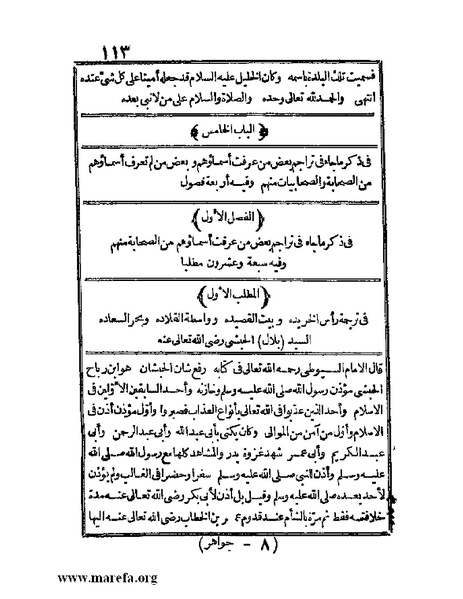 ١١٣
فسميت تلك البلدة باسمه وكان الخليل عليه السلام قد جعله أمينا على كل شئ عنده
انتهى والحمد لله تعالى وحده والصلاة والسلام على من لا نبى بعده
﴿ الباب الخامس ﴾
فى ذكر ما جاء فى تراجم بعض من عرفت أسماؤهم وبعض من لم تعرف أسماؤهم
من الصحابة والصحابيات منهم وفيه أربعة فصول
﴿ الفصل الأول ﴾
فى ذكر ما جاء فى تراجم بعض من عرفت أسماؤهم من الصحابة منهم
وفيه سبعة وعشرون مطلبا
﴿ المطلب الأول ﴾
فى ترجمة رأس الخريده وبيت القصيده وواسطة القلاده وبحر السعاده
السيد (بلال) الحبشى رضى الله تعالى عنه
قال الامام السيوطى رحمه الله تعالى فى كتابه رفع شان الحبشان هو ابن رباح
الحبشى مؤذن رسول الله صلى الله عليه وسلم وخازنه وأحد السابقين الأولين فى
الاسلام وأحد الذين عذبوا فى الله تعالى بأنواع العذاب فصبروا وأول مؤذن أذن فى
الاسلام وأول من آمن من الموالى وكان يكنى بأبى عبد الله وأبى عبد الرحمن وأبى
عبد الكريم وأبى عمر شهد غزوة بدر والمشاهد كلها مع رسول الله صلى الله
عليه وسلم وأذن للنبى صلى الله عليه وسلم سفرا وحضرا فى الغالب ولم يؤذن
لأحد بعده صلى الله عليه وسلم وقيل بل أذن لأبى بكر رضى الله تعالى عنه مدة
خلافته فقط ثم مرة بالشأم عند قدوم عمر بن الخطاب رضى الله تعالى عنه اليها
(٨ - جواهر)
www.marefa.org